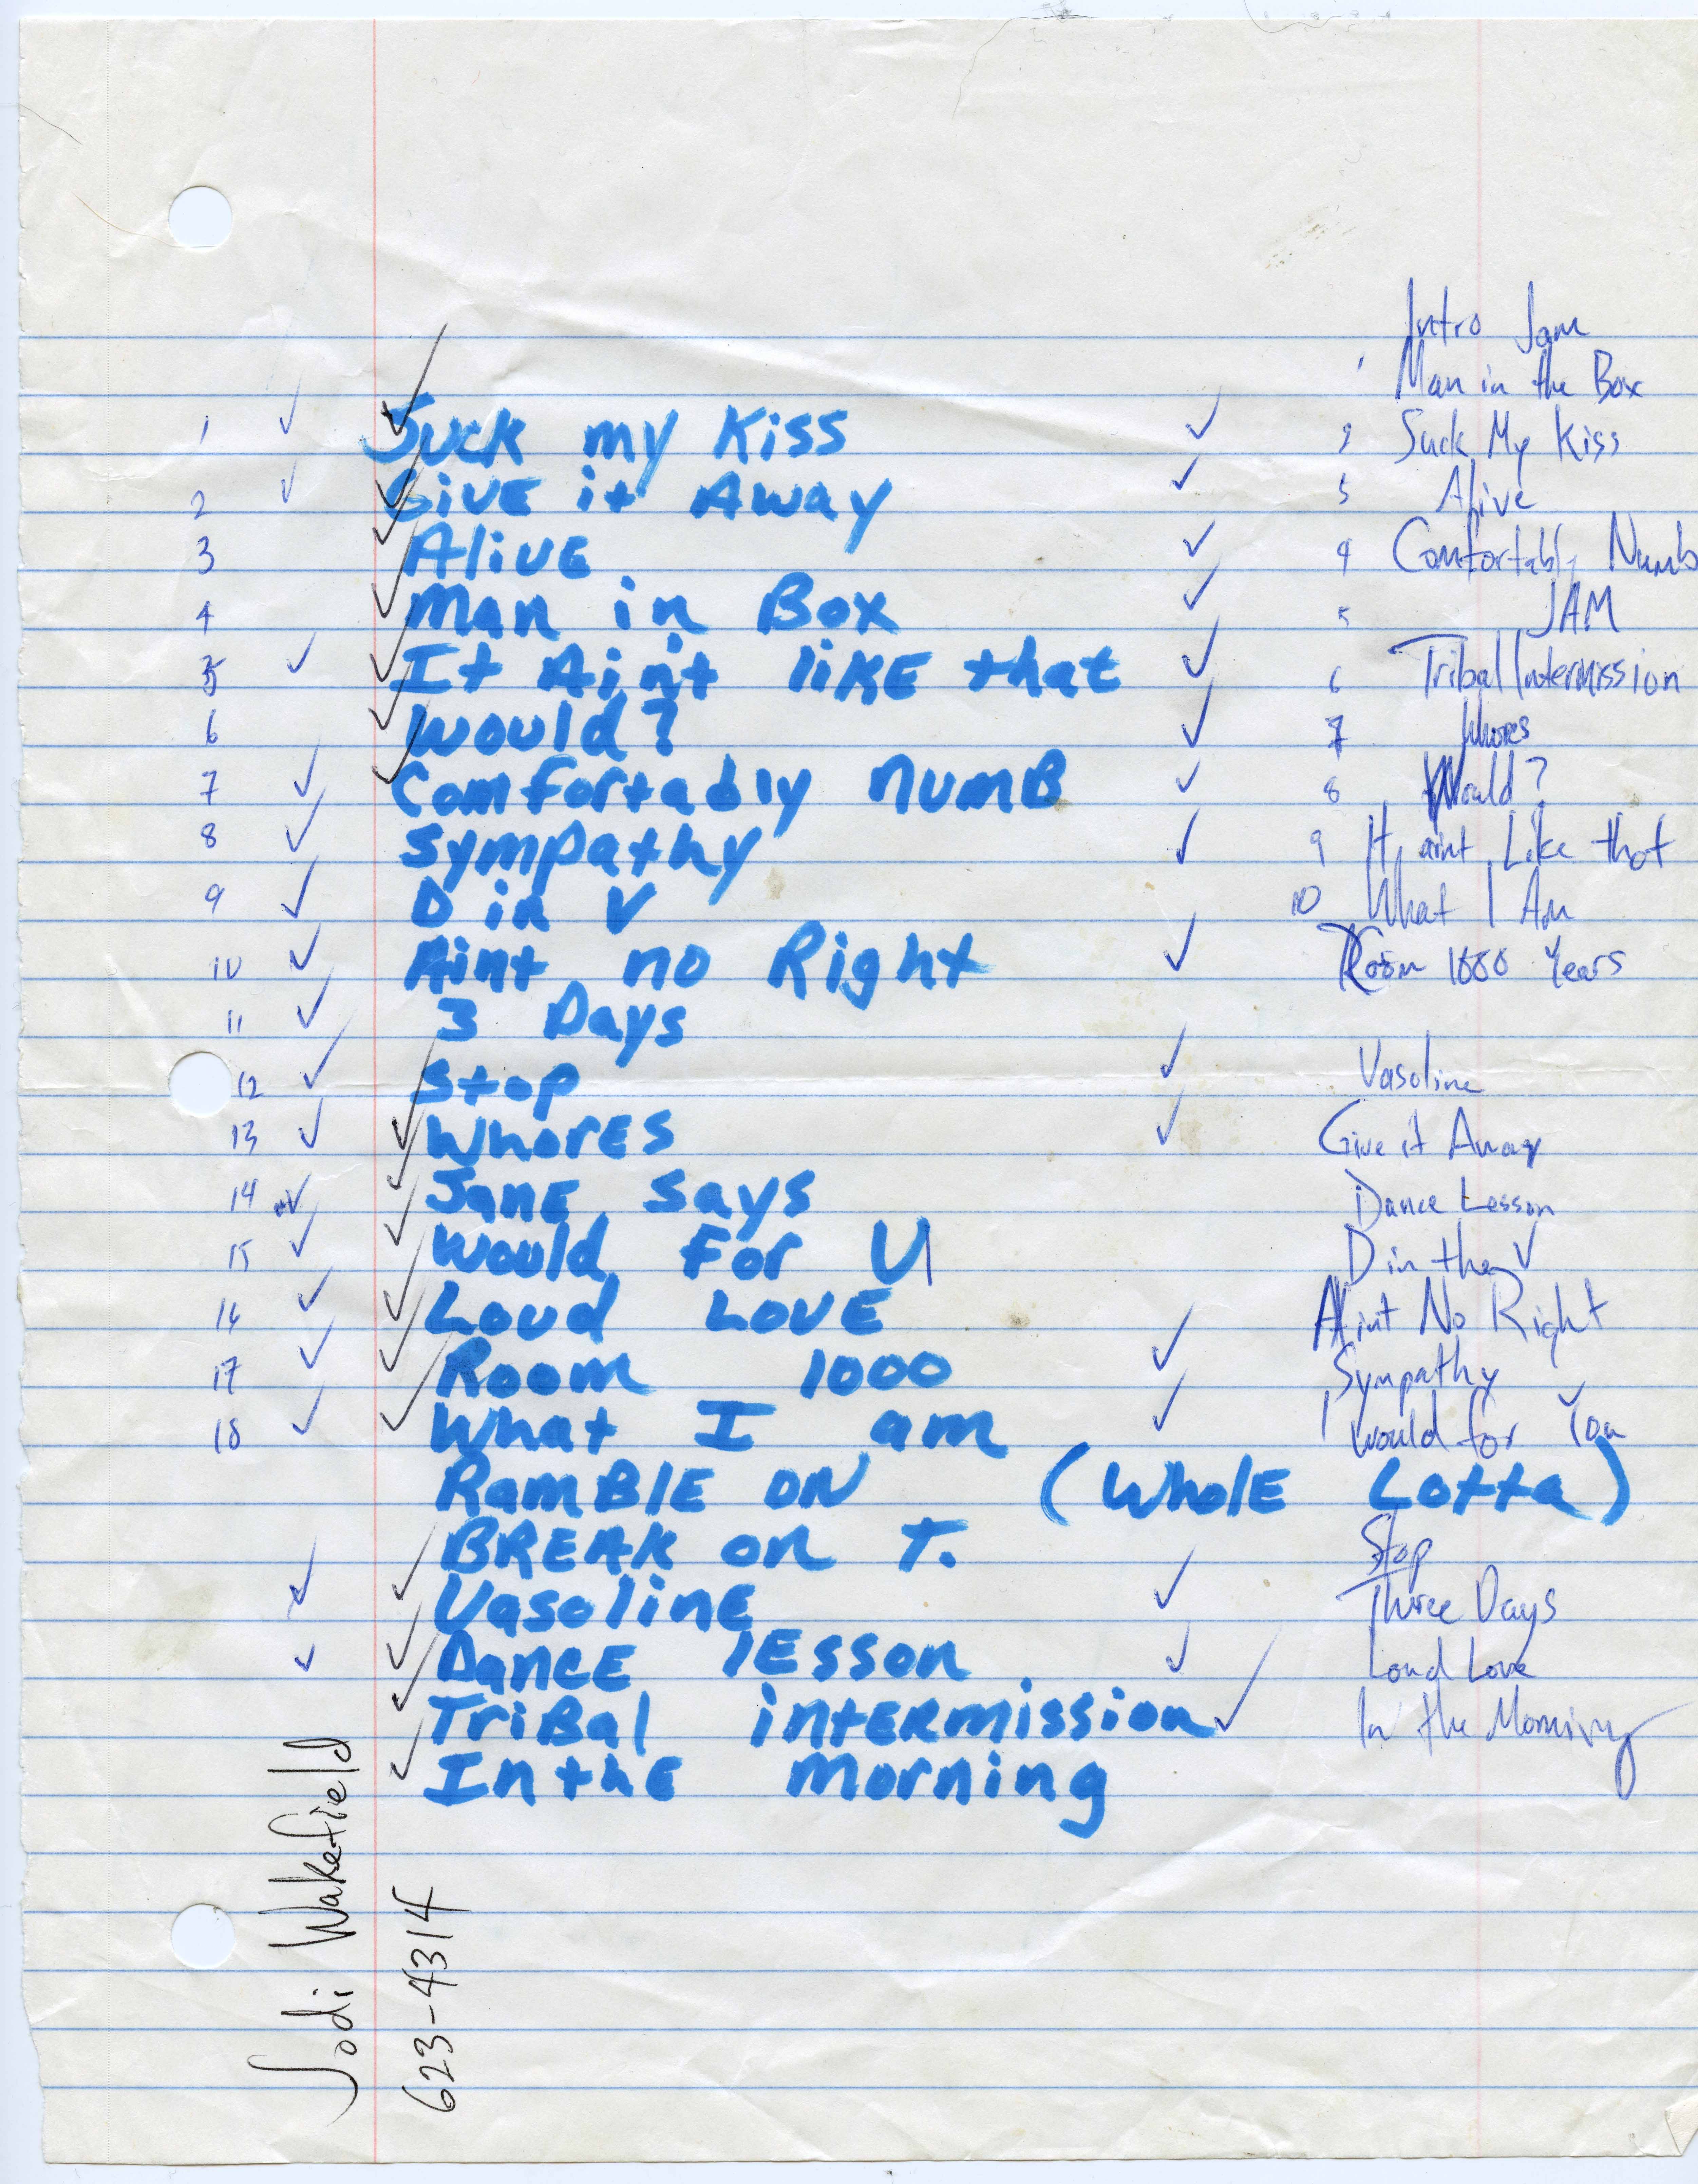 Intro Jam
' Man in the Box
1 Suck my Kiss 2 Suck My Kiss
2 GiVE it Away 3 Alive
3 AliVE 4 Comfortably Numb
4 Man in Box 5 JAM
5 It Ain't liKE that 6 Tribal Intermission
6 Would? 7 Whores
7 Comfortably numB 8 Would?
8 Sympathy 9 It aint Like that
9 D in V 10 What I Am
10 Aint no Right Room 1000 Years
11 3 Days
12 Stop Vasoline
13 WhorES Give it Away
14 JanE says Dance Lesson
15 Would For U D in the V
16 Loud LOVE Aint No Right
17 Room 1000 Sympathy
18 What I am I would for You
RamBlE ON (WholE Lotta)
BREAK on T. Stop
VasolinE Three Days
DancE lEsson Loud Love
TriBal intERmission In the Morning
In thE morning
Jodi Wakefield
623-4314